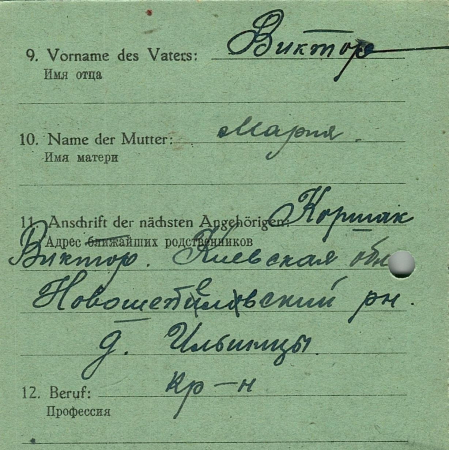 9. Vorname des Vaters: Виктор
Имя отца
10. Name der Mutter: Мария.
Имя матери
11. Anschrift der nächsten Angehörigen: Коршак
Адрес ближайших родственников
Виктор. Киевская обл
Новошепелевский рн.
д. Ильинцы.
12. Beruf: кр-н
Профессия